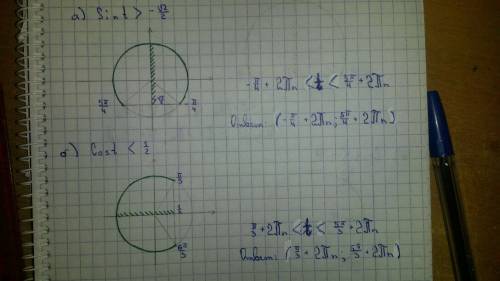 а) Sin t > -√2/2
5π/4 -π/4
-π/4 + 2πn < t < 5π/4 + 2πn
Ответ: (-π/4 + 2πn; 5π/4 + 2πn)
б) Cos t < 1/2
π/3
1/2
5π/3
π/3 + 2πn < t < 5π/3 + 2πn
Ответ: (π/3 + 2πn; 5π/3 + 2πn)